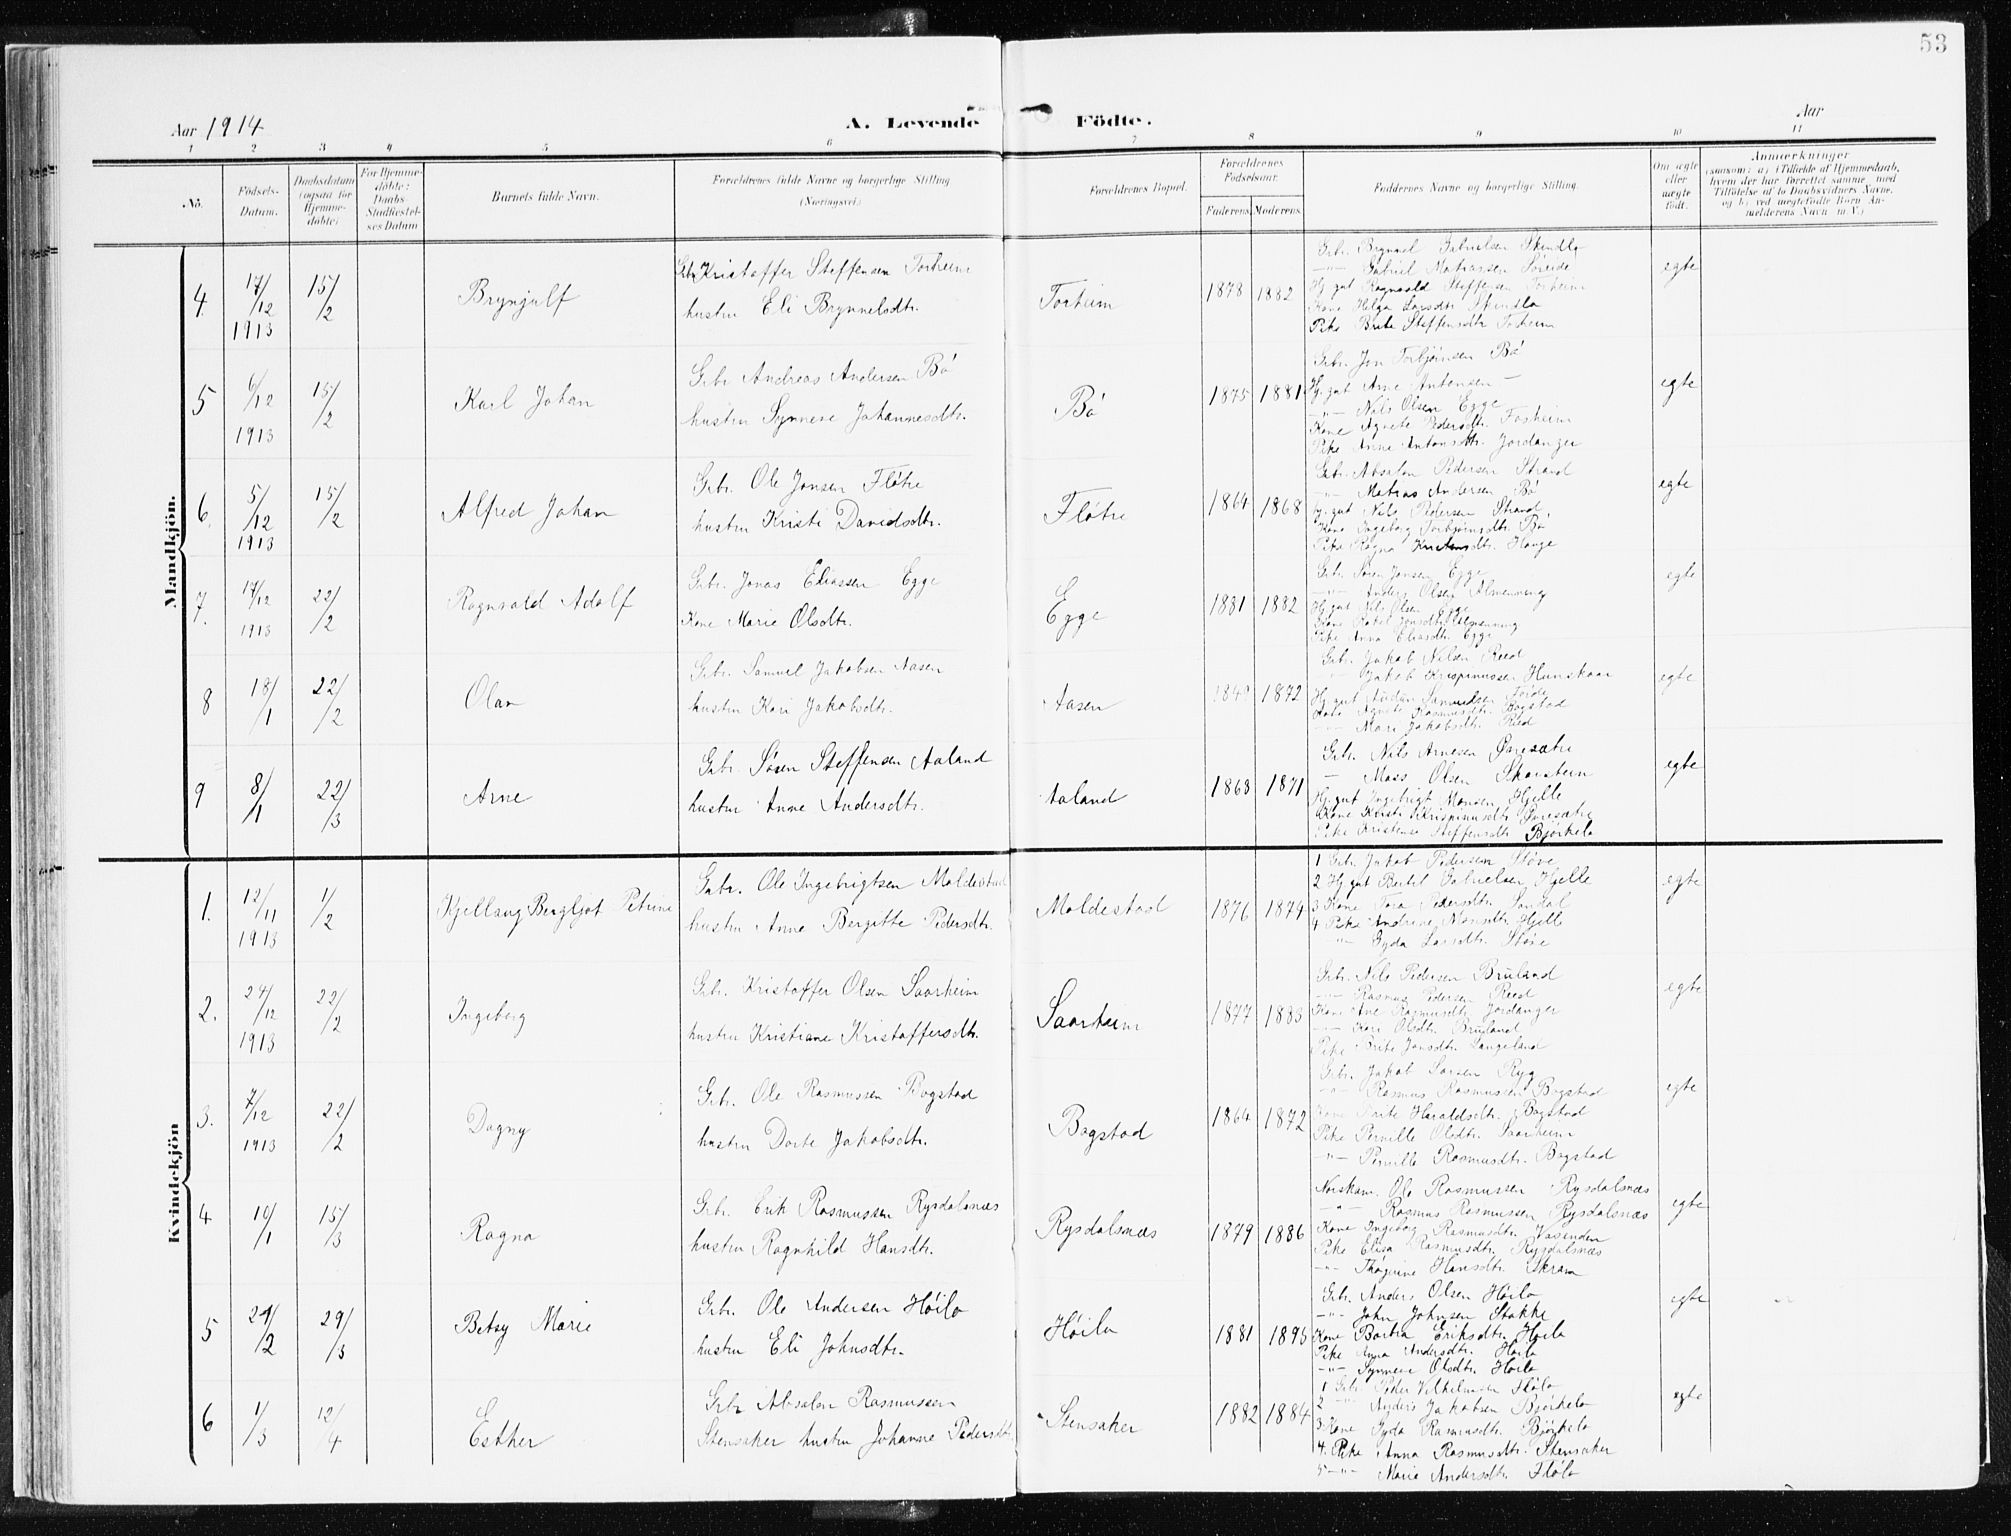 53
Aar 1914
A. Levende Födte.
Aar
1 2 3 4 5 6 7 8 9 10 11
No.
Födsels-Datum.
Daabsdatum (ogsaa for Hjemme-döbte)
For Hjemme-döbte: Daabs Stadfæstel-ses Datum
Barnets fulde Navn.
Forældrenes fulde Navne og borgerlige Stilling (Næringsvei.)
Forældrenes Bopæl.
Forældrenes Födselsaar.
Faderens. Moderens.
Faddernes Navne og borgerlige Stilling.
Om ægte eller uægte födt.
Anmærkninger
Mandkjön.
4. 17/12 1913 15/2 Brynjulf
Gbr. Kristoffer Steffensen Forheim
hustru Eli Brynnelsdtr.
Forheim 1878 1882
Gbr. Brynnel Gabrielsen Skindlo
-"- Gabriel Matiassen Søreide
Hj. gut Ragnvald Steffensen Forheim
Kone Helga Larsdtr. Skindlo
Pike Brite Steffensdtr Forheim
egte
5 6/12 1913 15/2 Karl Johan
Gbr Andreas Andersen Bö
hustru Synneve Johannesdtr.
Bö 1875 1881
Gbr. Jon Torbjörnsen Bö
Hj. gut Arne Antonsen -
-"- Nils Olsen Egge
Kone Agnete Pedersdtr. Forheim
Pike Anne Antonsdtr. Jordanger
egte
6. 5/12 1913 15/2 Alfred Johan
Gbr. Ole Jonsen Fløtre
hustru Kristi Davidsdtr.
Fløtre 1864 1868
Gbr. Absalon Pedersen Strand
-"- Matias Andersen Bö
Hj. gut Nils Pedersen Strand,
Kone Ingeborg Torbjörnsdtr. Bö
Pike Ragna Kristensdtr. Hauge
egte
7. 14/12 1913 22/2 Ragnvald Adolf
Gbr. Jonas Eliassen Egge
Kone Marie Olsdtr.
Egge 1881 1882
Gbr. Søren Jonsen Egge
-"- Anders Olsen Almenning
Hj. gut Nils Olsen Egge
Kone Rakel Jonsdtr. Almenning
Pike Anna Eliasdtr. Egge
egte
8 18/1 22/2 Olav
Gbr. Samuel Jakobsen Aasen
hustru Kari Jakobsdtr.
Aasen 1849 1872
Gbr. Jakob Nilsen Reed
-"- Jakob Krispinussen Hunskaar
Hj. gut Audun Samuelsen Førde
Kone Agnete Rasmusdtr. Bogstad
-"- Mari Jakobsdtr. Reed
egte
9 8/1 22/3 Arne
Gbr. Søren Steffensen Aaland
hustru Anne Andersdtr.
Aaland 1868 1871
Gbr. Nils Arnesen Øvresætre
- Mons Olsen Skarstein
Hj. gut Ingebrigt Monsen Hjelle
Kone Kristi Krispinusdtr. Øvresætre
Pike Kristense Steffensdtr Bjørkelo
egte
Kvindekjön
1. 12/11 1913 1/2 Kjellaug Bergljot Petrine
Gbr. Ole Ingebrigtsen Moldestad
hustru Anne Bergitte Pedersdtr.
Moldestad 1876 1874
1 Gbr. Jakob Pedersen Støve
2 Hj. gut Bertel Gabrielsen Hjelle
3 Kone Tora Pedersdtr. Sandal
4 Pike Andrine Monsdtr. Hjelle
-"- Gyda Larsdtr. Støve
egte
2. 24/12 1913 22/2 Ingeborg
Gbr. Kristoffer Olsen Saarheim
hustru Kristiane Kristoffersdtr.
Saarheim 1877 1883
Gbr. Nils Pedersen Bruland
-"- Rasmus Pedersen Reed
Kone Ane Rasmusdtr. Jordanger
-"- Kari Olsdtr. Bruland
Pike Brite Jonsdtr. Langeland
egte
3. 7/12 1913 22/2 Dagny
Gbr. Ole Rasmussen Bogstad
hustru Dorte Jakobsdtr.
Bogstad 1864 1872
Gbr. Jakob Larsen Ryg
-"- Rasmus Rasmussen Bogstad
Kone Brite Haraldsdtr. Bogstad
Pike Pernille Olsdtr. Saarheim
-"- Pernille Rasmusdtr. Bogstad
egte
4 10/1 15/3 Ragna
Gbr. Erik Rasmussen Rysdalsnæs
hustru Ragnhild Hansdtr.
Rysdalsnæs 1879 1886
Norskam. Ole Rasmussen Rysdalsnæs
-"- Rasmus Rasmussen Rysdalsnæs
Kone Ingeborg Rasmusdtr. Vasenden
Pike Elisa Rasmusdtr. Rysdalsnæs
-"- Hansdtr. Skram
egte
5 24/2 29/3 Betsy Marie
Gbr. Ole Andersen Høilo
hustru Eli Johnsdtr.
Høilo 1881 1895
Gbr. Anders Olsen Høilo
-"- John Johnsen Stokke
Kone Barbra Eriksdtr. Høilo
Pike Anna Andersdtr. Høilo
-"- Synneve Olsdtr. Høilo
egte
6 1/3 12/4 Esther
Gbr Absalon Rasmussen
Stensaker hustru Johanne Pedersdtr
Stensaker 1882 1884
1 Gbr. Peder Vilhelmsen Flølo
2 -"- Anders Jakobsen Bjørkelo
3 Kone Gyda Rasmusdtr. Bjørkelo
4. Pike Anna Rasmusdtr. Stensaker
5 -"- Marie Andersdtr. Flølo
egte